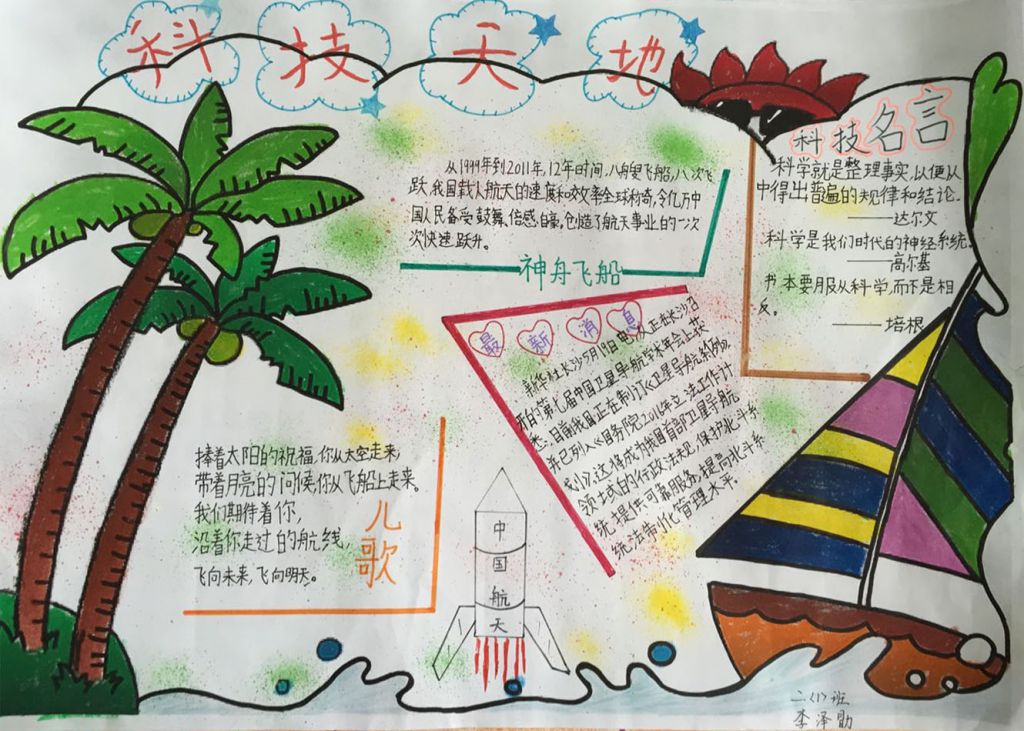 科技天地
从1999年到2011年,12年时间,八艘飞船,八次飞
跃,我国载人航天的速度和效率全球称奇,令亿万中
国人民备受鼓舞、倍感自豪,创造了航天事业的一次
次快速跃升。
神舟飞船
科技名言
科学就是整理事实,以便从
中得出普遍的规律和结论.
——达尔文
科学是我们时代的神经系统.
——高尔基
书本要服从科学,而不是相
反。
——培根
最新消息
新华社长沙5月18日电 正在长沙召
开的第七届中国卫星导航学术年会上获
悉:目前我国正在制订《卫星导航条例》
并已列入《国务院2016年立法工作计
划》,这将成为我国首部卫星导航
领域的行政法规,保护北斗系
统提供可靠服务,提高北斗系
统法制化管理水平.
捧着太阳的祝福,你从太空走来,
带着月亮的问候,你从飞船上走来。
我们期待着你,
沿着你走过的航线,
飞向未来,飞向明天。
儿歌
中国航天
二(1)班
李泽勋